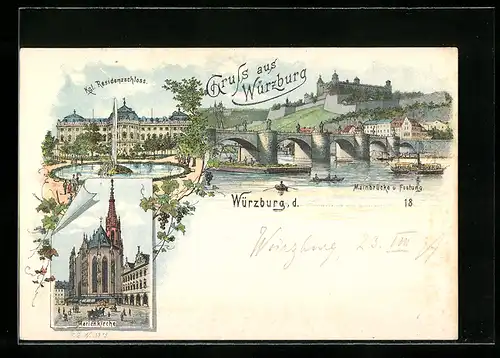 Kgl. Residenzschloss.
Gruss aus
Würzburg
Mainbrücke u. Festung.
Würzburg, d. 18
Würzburg, 23.
Marienkirche